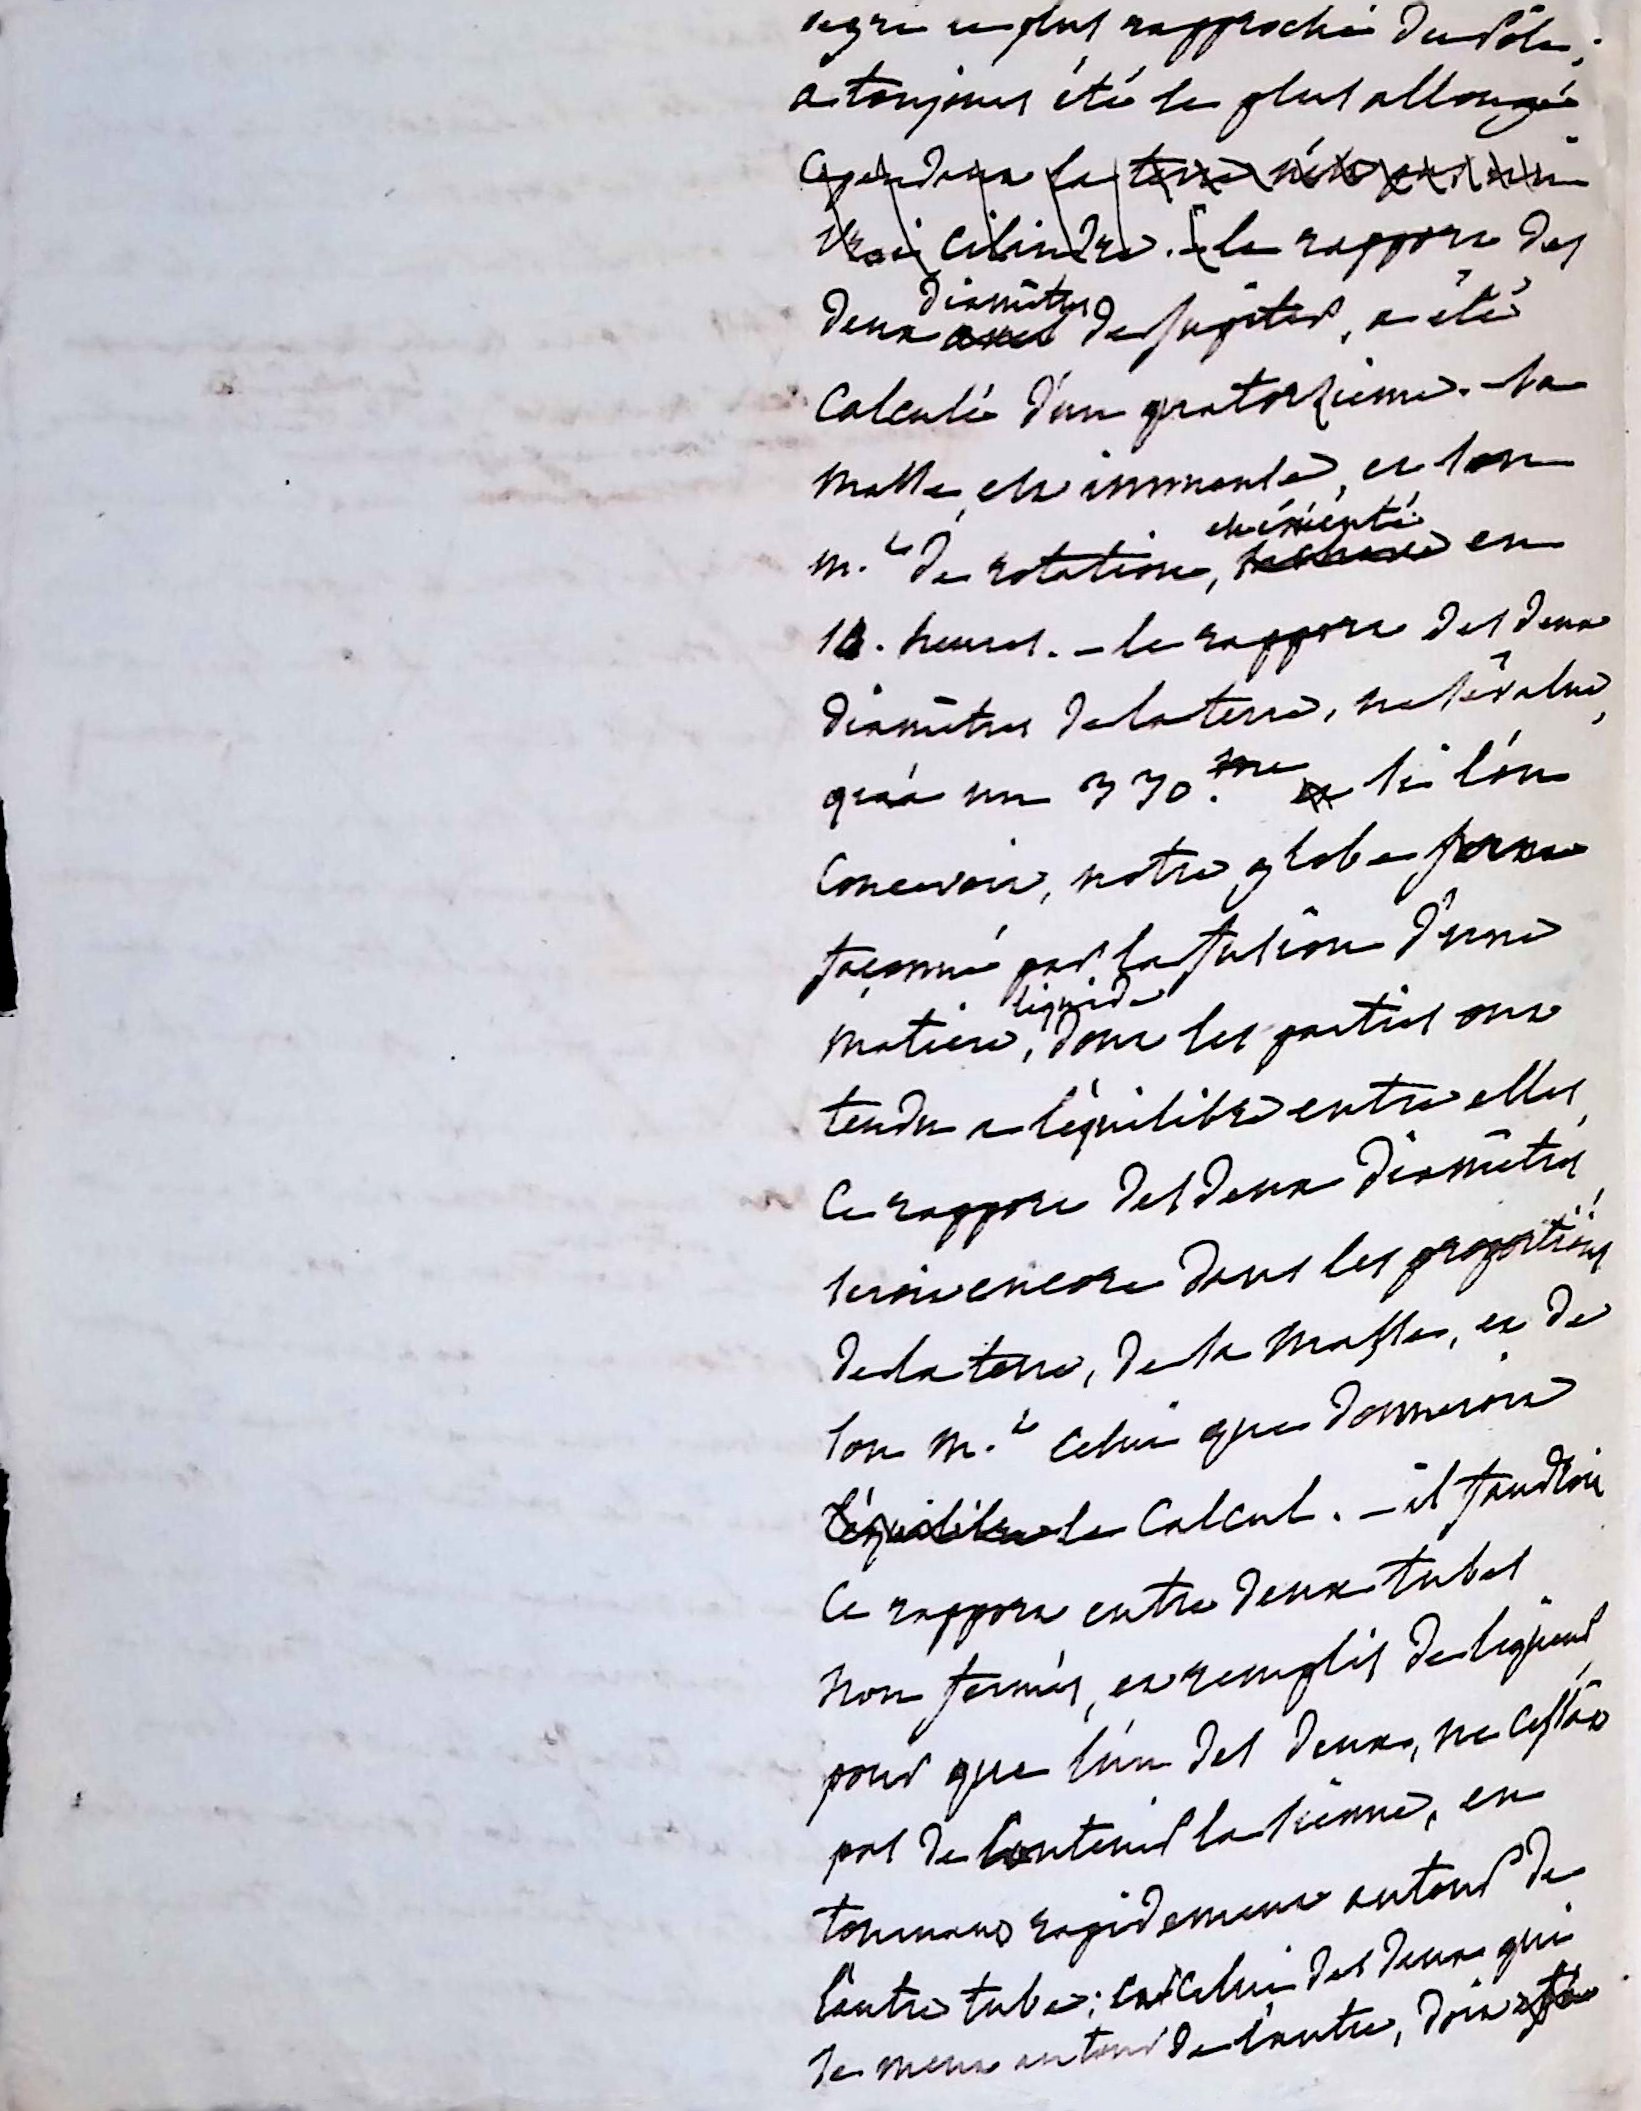 degré le plus rapproché du Pôle,
a toujours été le plus allongé
Cependant la terre n'est pas un
vrai cilindre. – le rapport des
diamêtres
deux axes de Jupiter, a été
Calculé d'un quatorzieme. – sa
masse, est immense, et son
exécuté
m.t de rotation, en
10. heures. – le rapport des deux
diamêtres de la terre, ne s'évalue,
qu'à un 330.me et si l'on
Concevoit, notre globe forme
façonné par la fusion d'une
liquide
matiere, dont les parties ont
tendu a l'équilibre entre elles,
Ce rapport des deux diamêtres
seroit encore dans les proportions
de la terre, de sa masse, et de
son m.t celui que donneroit
l'équilibre le Calcul. – il faudroit
Ce rapport entre deux tubes
non fermés, et remplis de liqueur,
pour que l'un des deux, ne cessât
pas de Contenir la sienne, en
tournant rapidement autour de
l'autre tube; Car celui des deux qui
se meut autour de l'autre, doit